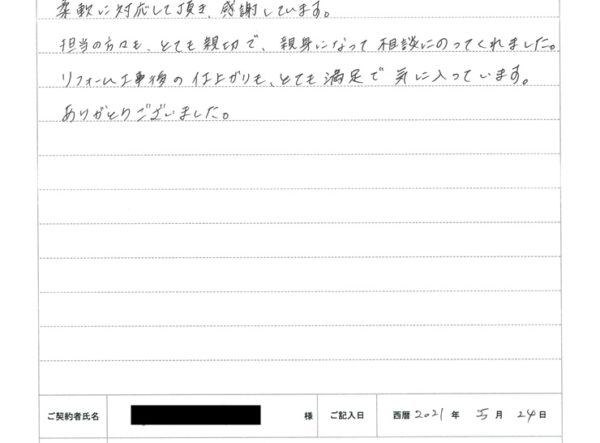 柔軟に対応して頂き、感謝しています。
担当の方々も、とても親切で、親身になって相談にのってくれました。
リフォーム工事後の仕上がりも、とても満足で気に入っています。
ありがとうございました。
ご契約者氏名 様 ご記入日 西暦 2021 年 5 月 24 日